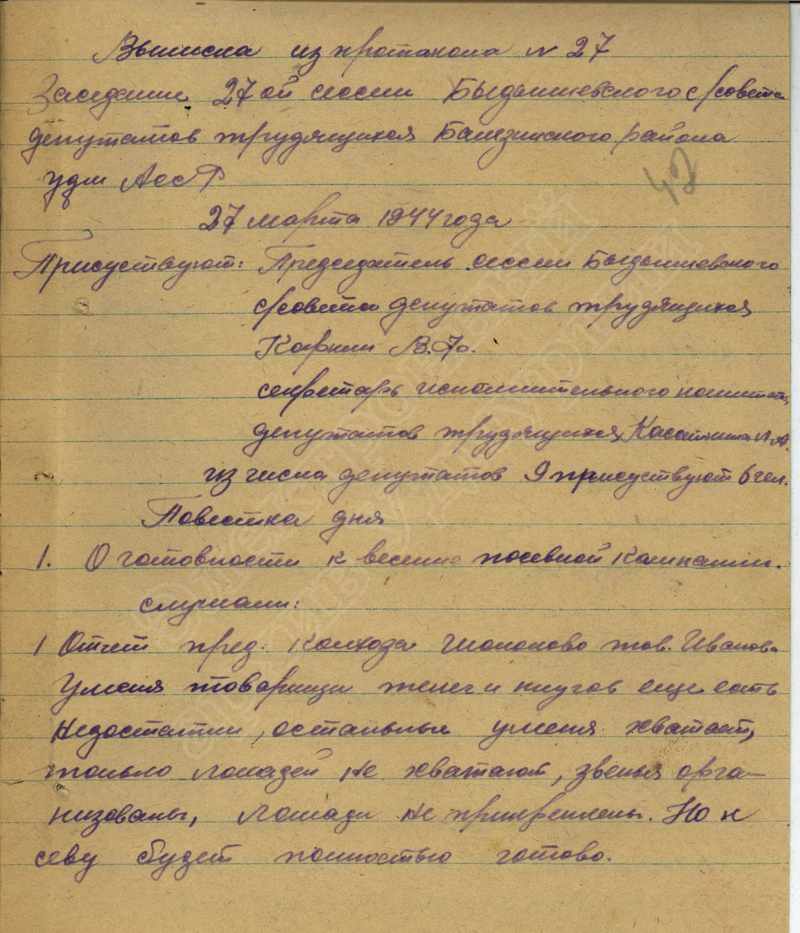 Выписка из протокола N 27
Заседание 27ой сессии Быдыпиевского с/совета
депутатов трудящихся Балезинского района
удм АССР
42
27 марта 1944 года
Присуствуют: Председатель сессии Быдыпиевского
с/совета депутатов трудящихся
В.
секретарь исполнительного комитета
депутатов трудящихся Касаткина
из числа депутатов 9 присуствуют 6 чел.
Повестка дня
1. О готовности к весенне посевной компании.
слушали:
1 Отчет пред. колхоза тов. Иванова
товарищи и плугов еще есть
недостатки, остальные хватает,
только лошадей не хватает, звенья орга-
низованы, лошади не прикреплены. Но к
севу будет полностью готово.